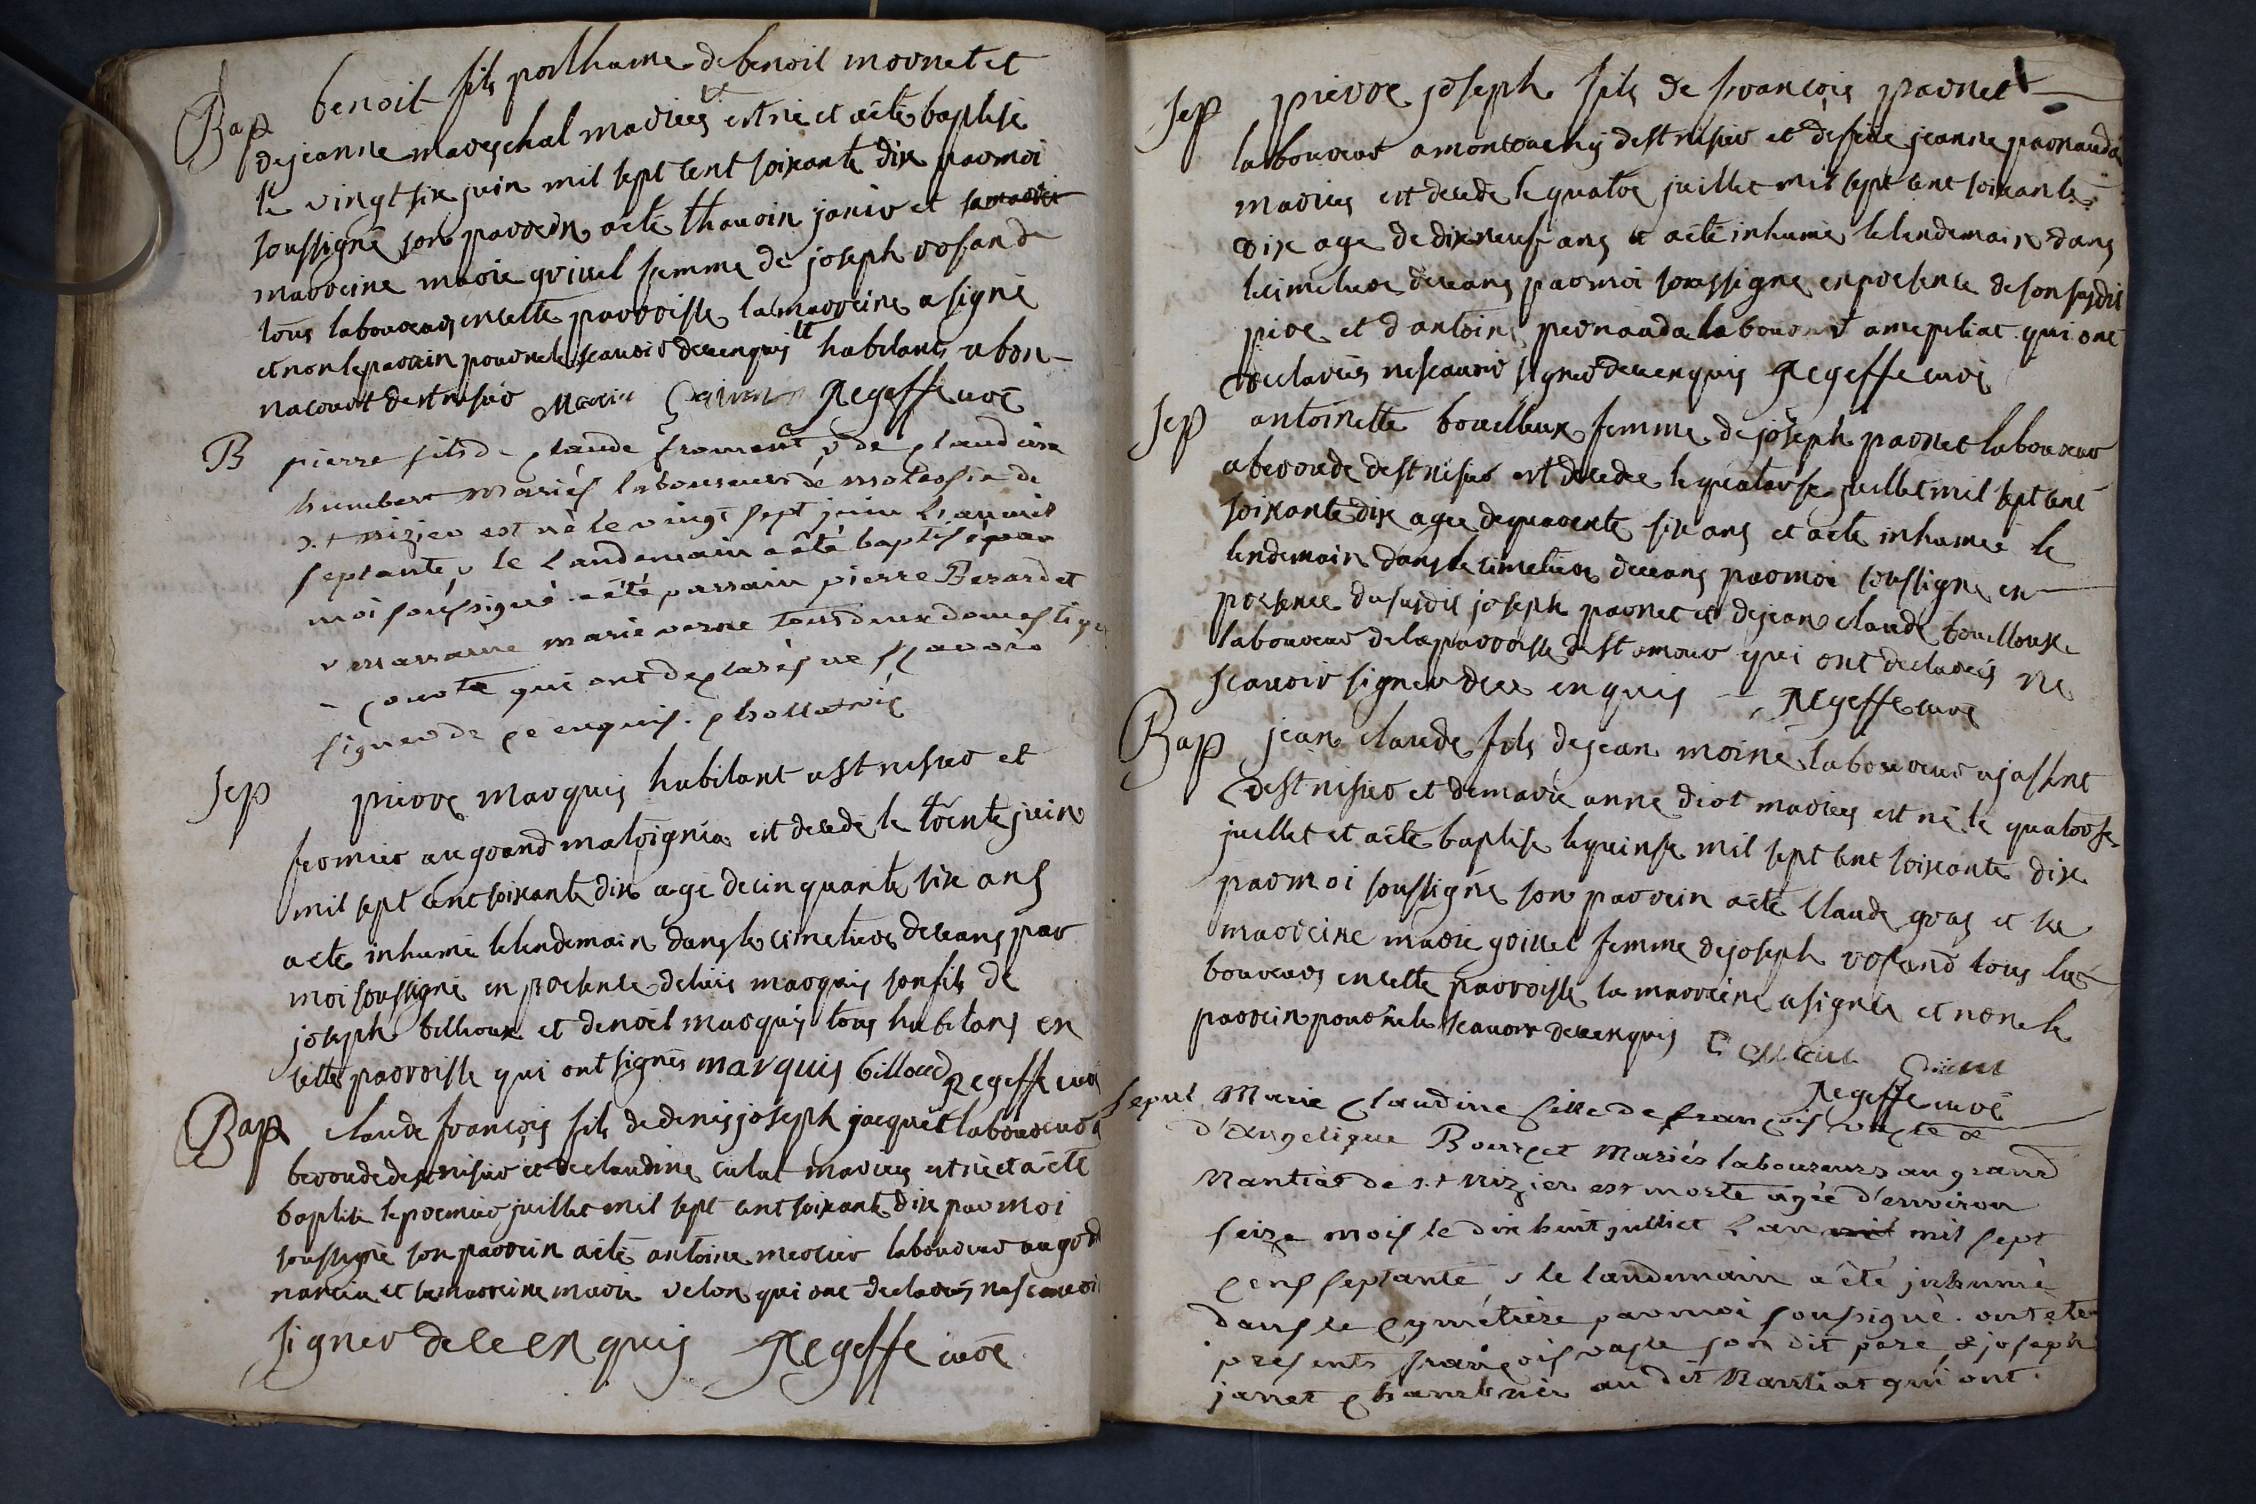 Bap benoit fils posthume de benoit mornet et
de jeanne mareschal mariés est né et a été baptisé
le vingt six juin mil sept cent soixante dix par moi
soussigné son parrein a été thauoin janin et
marreine marie grivel femme de joseph rosand
tous laboureurs en cette parroisse la marreine a signé
et non le parrein pour ne le scavoir de ce enquis habitants a bon-
nacourt de st nisier Marie Grivel Regeffe curé
B pierre fils de claude froment & de claudine
humbert mariés laboureurs de
st nizier est né le vingt sept juin l'an mil
septante & le landemain a été baptisé par
moi soussigné. a été parrain pierre Berard et
& marraine marie verne tous deux domestiques
a qui ont declarés ne sçavoir
signer de ce enquis.
Sep pierre marquis habitant a st nisier et
fermier au grand malsignia est decedé le trente juin
mil sept cent soixante dix agé de cinquante six ans
a été inhumé le lendemain dans le cimetiere de ceans par
moi soussigné en presence de marquis son fils de
joseph billioux et de noël marquis tous habitans en
cette parroisse qui ont signés marquis billoud Regeffe curé
Bap claude françois fils de denis joseph jacquet laboureur a
beroude de st nisier et de claudine culat mariés est né et a été
baptisé le premier juillet mil sept cent soixante dix par moi
soussigné son parrein a été antoine mercier laboureur au grd
nancia et sa marreine marie velon qui ont declarés ne scavoir
signer de ce enquis Regeffe curé
Sep pierre joseph fils de françois parnet
laboureur a montcueny de st nisier et de feüe jeanne parnauda
mariés est decedé le quatre juillet mil sept cent soixante
dix agé de dix neuf ans et a été inhumé le lendemain dans
le cimetiere de ceans par moi soussigné en presence de son susdit
pere et d'antoine pernauda laboureur a qui ont
declarés ne scavoir signer de ce enquis Regeffe curé
Sep antoinette bouilloux femme de joseph parnet laboureur
a beroude de st nisier est decedee le quatorse juillet mil sept cent
soixante dix agée de quarente six ans et a été inhumée le
lendemain dans le cimetiere de ceans par moi soussigné en
presence du susdit joseph parnet et de jean claude bouilloux
laboureur de la parroisse de st amour qui ont declarés ne
scavoir signer de ce enquis Regeffe curé
Bap jean claude fils de jean moine laboureur a jassent
de st nisier et de marie anne diot mariés est né le quatorse
juillet et a été baptisé le quinse mil sept cent soixante dix
par moi soussigné son parrein a été claude gras et sa
marreine marie grivel femme de joseph rosand tous la-
boureurs en cette parroisse la marreine a signée et non le
parrein pour ne le scavoir de ce enquis Marie Grivel
Regeffe curé
Sepul Marie claudine fille de françois vaste &
d'angelique Bourcet Mariés laboureurs au grand
Nantiat de st Nizier est morte agée d'environ
seize mois le dix huit juillet l'an mil sept
cens septante, & le landemain a été inhumé
dans le cymetiere par moi soussigné. ont été
presents françois vaste son dit pere & joseph
janet au dit Nantiat qui ont.